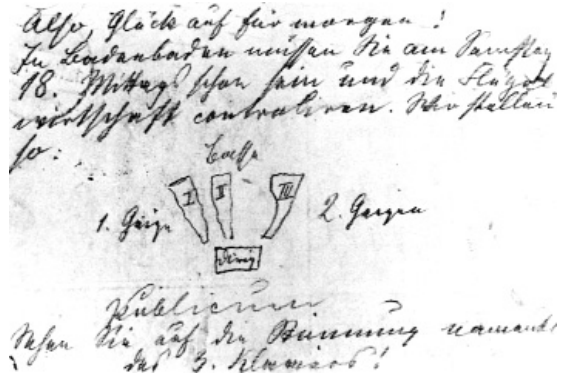 Also, Glück auf für morgen!
In Badenbaden müssen Sie am Samstag
18. Mittags schon sein und die Flügel
wirtschaft controliren. Wir stellen
so:
Bässe
I II III
1. Geige 2. Geigen
Dirig
Publicum
Sehen Sie auf die Stimmung namentl
des 3. Klaviers!